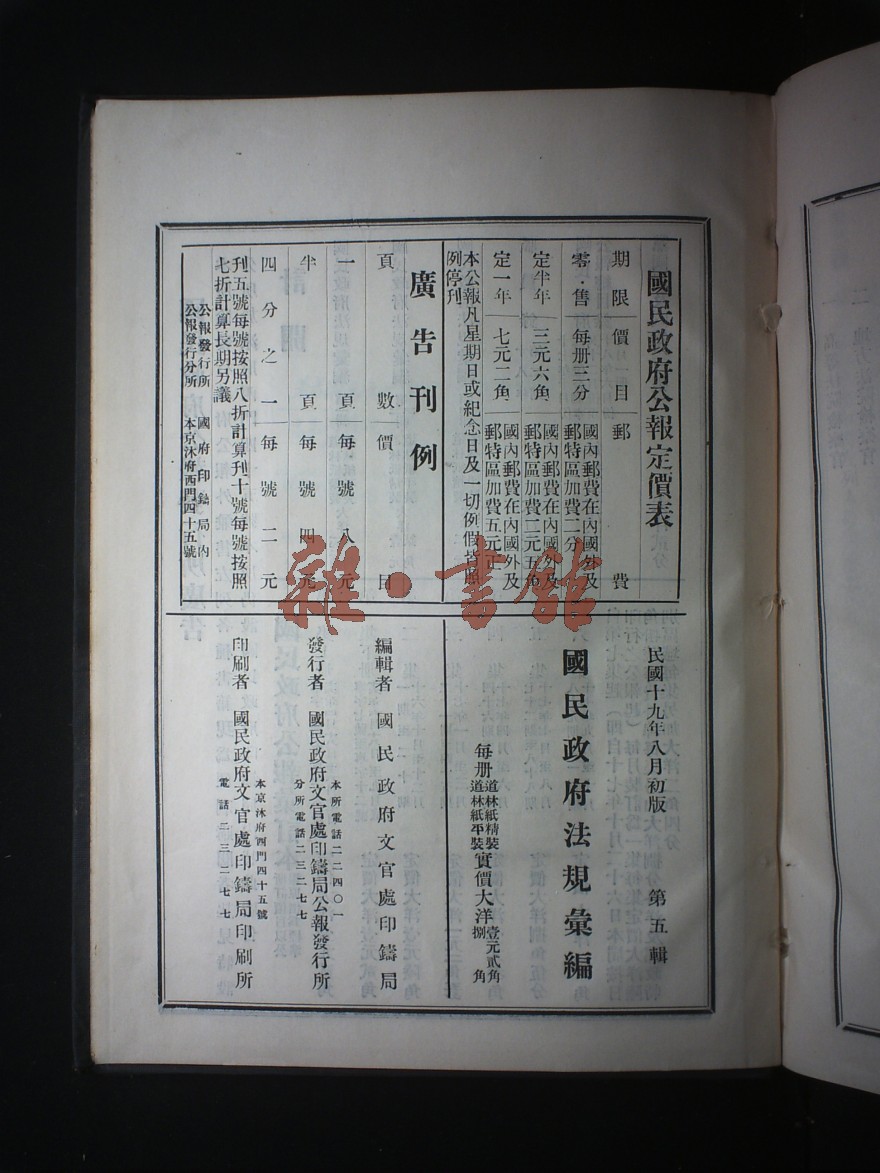 國民政府公報定價表
期限 價目 郵費
零售 每册三分 國內郵費在內國外及郵特區加費二分
定半年 三元六角 國內郵費在內國外及郵特區加費二元五角
定一年 七元二角 國內郵費在內國外及郵特區加費五元正
本公報凡星期日或紀念日及一切例假皆照例停刊
廣告刊例
頁數 價目
一頁 每號八元
半頁 每號四元
四分之一 每號二元
刊五號每號按照八折計算刊十號每號按照七折計算長期另議
公報發行所 國府印鑄局內
公報發行分所 本京沐府西門四十五號
民國十九年八月初版 第五輯
國民政府法規彙編
每册 道林紙精裝 實價大洋 壹元貳角
道林紙平裝 捌角
編輯者 國民政府文官處印鑄局
發行者 國民政府文官處印鑄局公報發行所
本所電話二二四〇一
分所電話二三二七七
印刷者 國民政府文官處印鑄局印刷所
本京沐府西門四十五號
電話二三二七七
雜·書館